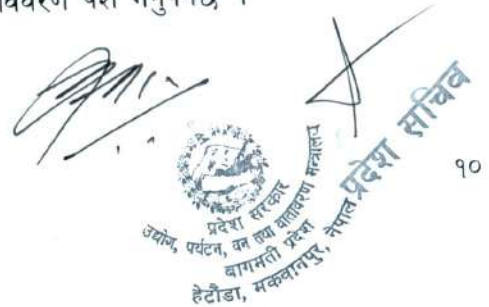 विवरण पेश गर्नुपर्नेछ ।
प्रदेश सरकार
उद्योग, पर्यटन, वन तथा वातावरण मन्त्रालय
बागमती प्रदेश
हेटौंडा, मकवानपुर, नेपाल
प्रदेश सचिव
१०